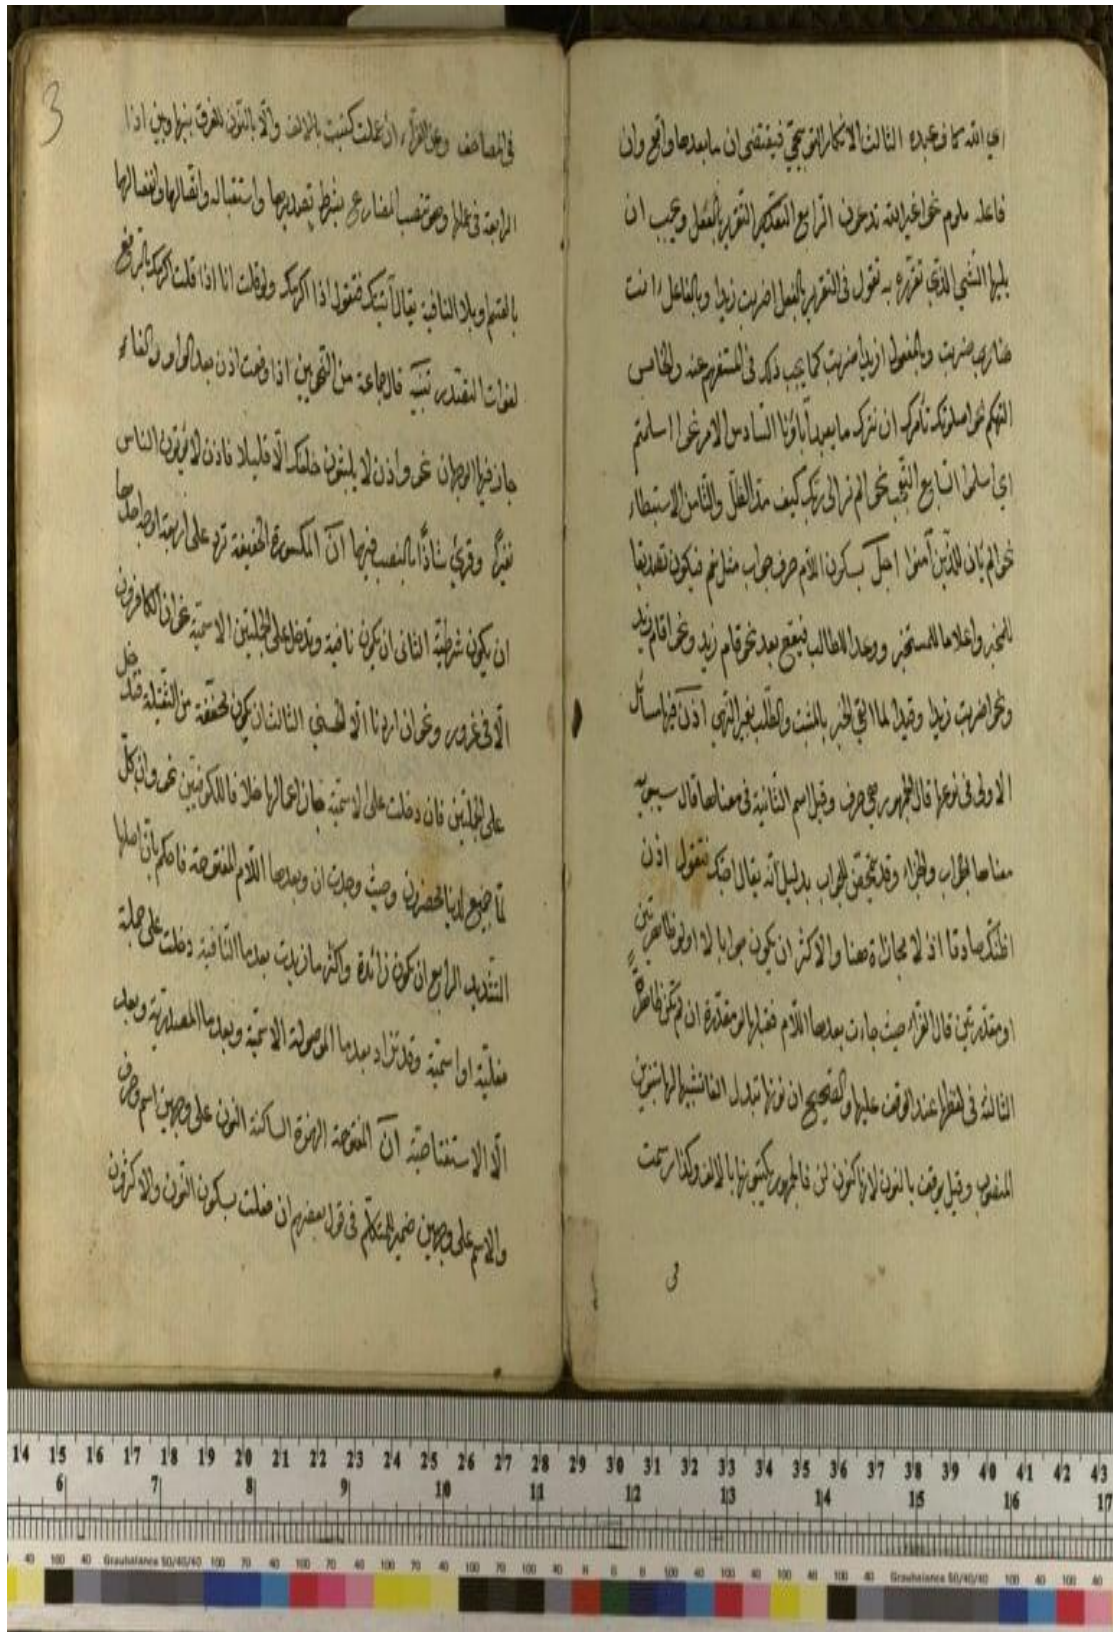 اي الله كاف عبده الثالث الانكار التوبيخي فيقتضى ان ما بعدها واقع وان
فاعله ملوم نحو اغير الله تدعون الرابع التقرير بالفعل ويجب ان
يليها الشئ الذي تقرره به تقول فى التقرير بالفعل اضربت زيدا وبالفاعل اانت
ضارب ضربت وبالمفعول ازيدا ضربت كما يجب ذلك فى المستفهم عنه والخامس
التهكم نحو اصلوتك تأمرك ان نترك ما يعبد آباؤنا السادس الامر نحو ااسلمتم
اي اسلموا السابع التعجب نحو الم تر الى ربك كيف مد الظل والثامن الاستبطاء
نحو الم يأن للذين آمنوا اجل بسكون اللام حرف جواب مثل نعم فيكون تصديقا
للمخبر واعلاما للمستخبر ووعدا للطالب فيقع بعد نحو قام زيد ونحو اقام زيد
ونحو اضرب زيدا وقيد لما الخبر بالمثبت والطلب بغير النهي اذن فيها مسائل
الاولى فى نوعها قال الجمهور هي حرف وقيل اسم الثانية فى معناها قال سيبويه
معناها الجواب والجزاء وقد تتمحض للجواب بدليل انه يقال احبك فتقول اذن
اظنك صادقا اذ لا مجازاة هنا والاكثر ان يكون جوابا لان او لو ظاهرتين
او مقدرتين قال الفراء حيث جاءت بعدها اللام فقبلها لو مقدرة ان لم تكن ظاهرة
الثالثة فى لفظها عند الوقف عليها والصحيح ان نونها تبدل الفا تشبيها لها بتنوين
المنصوب وقيل يوقف بالنون لانها كنون لن فالجمهور يكتبونها بالالف وكذا رسمت
فى
3
فى المصاحف وعن الفراء ان عملت كتبت بالالف والا بالنون للفرق بينها وبين اذا
الرابعة فى عملها وهو نصب المضارع بشرط تصديرها واستقباله واتصالها وانفصالها
بالقسم او بلا النافية يقال آتيك فتقول اذا اكرمك ولو قلت انا اذا قلت اكرمك بالرفع
لفوات التصدر تنبيه قال جماعة من النحويين اذا وقعت اذن بعد الواو والفاء
جاز فيها الوجهان نحو واذن لا يلبثون خلفك الا قليلا فاذن لا يؤتون الناس
نقيرا وقرئ شاذا بالنصب فيهما ان المكسورة الخفيفة ترد على اربعة اوجه احدها
ان يكون شرطية الثانى ان يكون نافية وتدخل على الجملتين الاسمية نحو ان الكافرون
الا فى غرور ونحو ان اردنا الا الحسنى الثالث ان يكون مخففة من الثقيلة فتدخل
على الجملتين فان دخلت على الاسمية جاز اعمالها خلافا للكوفيين نحو وان كل
لما جميع لدينا محضرون وحيث وجدت ان وبعدها اللام المفتوحة فاحكم بان اصلها
التشديد الرابع ان تكون زائدة واكثر ما زيدت بعد ما النافية دخلت على جملة
فعلية او اسمية وقد تزاد بعد ما الموصولة الاسمية وبعد ما المصدرية وبعد
الا الاستفتاحية ان المفتوحة الهمزة الساكنة النون على وجهين اسم وحرف
والاسم على وجهين ضمير المتكلم فى قول بعضهم ان فعلت بسكون النون والاكثرون
14 15 16 17 18 19 20 21 22 23 24 25 26 27 28 29 30 31 32 33 34 35 36 37 38 39 40 41 42 43
6 7 8 9 10 11 12 13 14 15 16 17
40 100 40 Graubalance 50/40/40 100 70 40 100 70 40 100 70 40 100 70 100 40 R G B 100 40 100 40 100 40 100 40 Graubalance 50/40/40 100 40 100 40